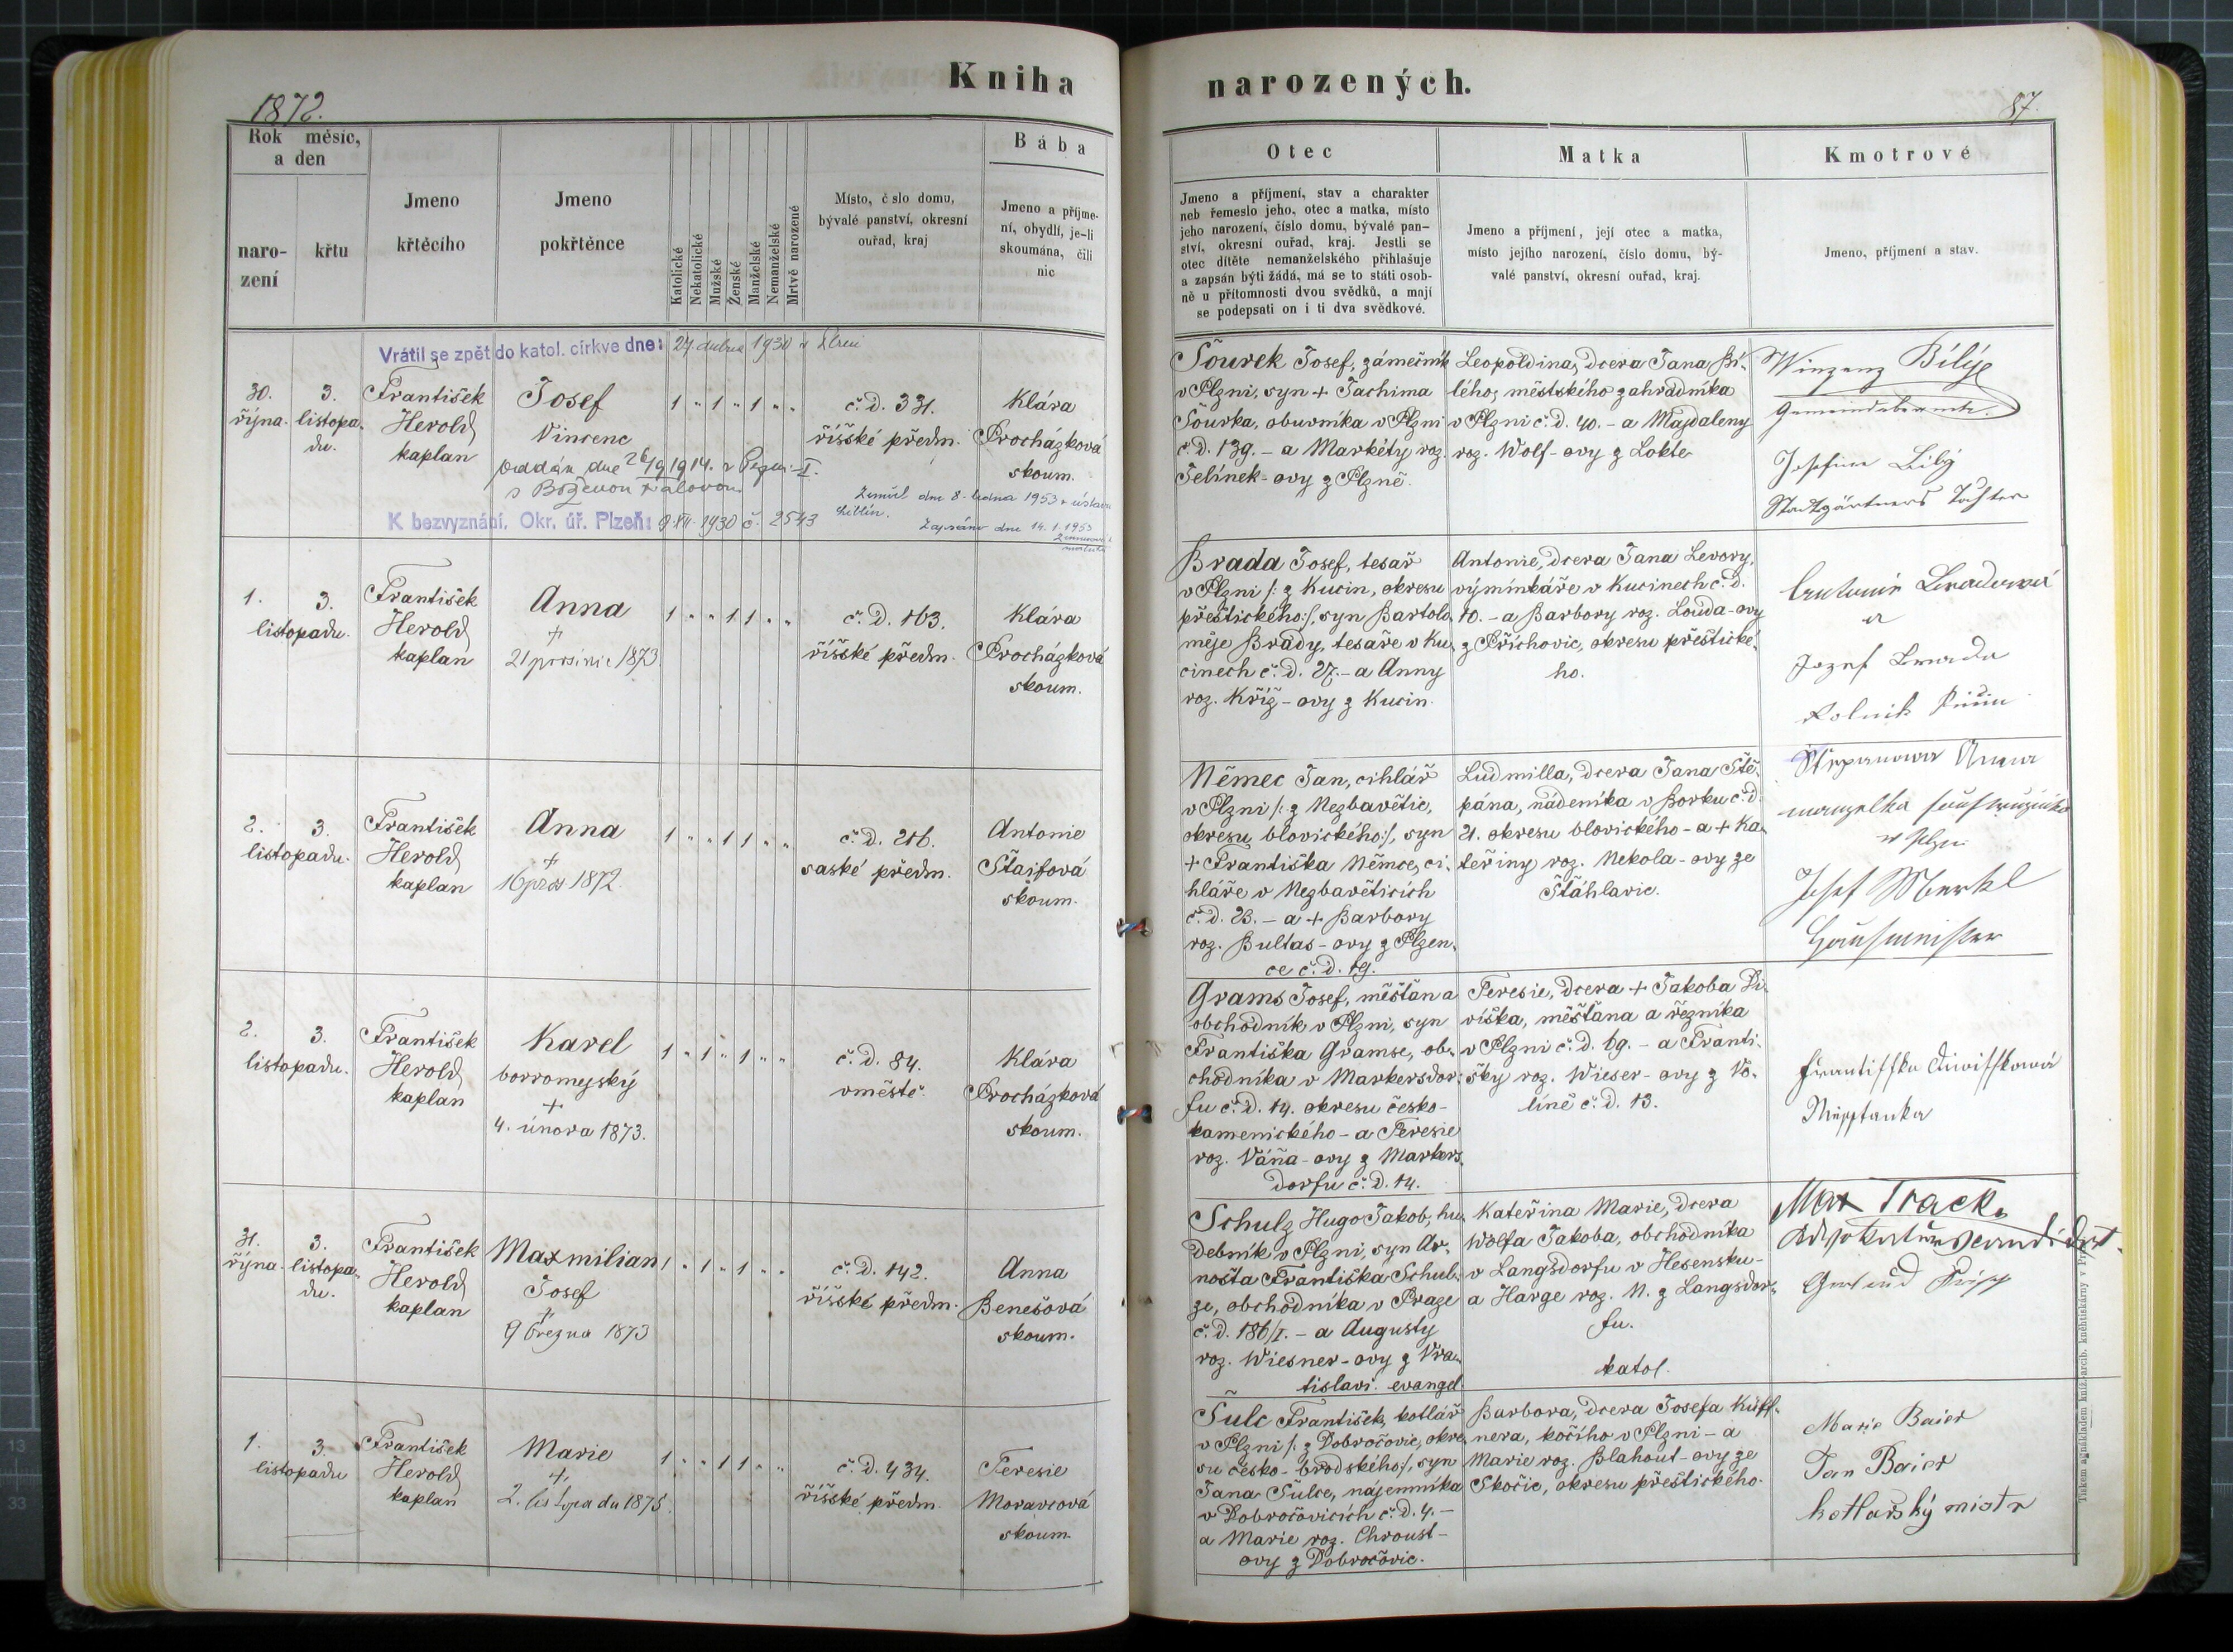 Kniha narozených.
1872.
87.
Rok měsíc,
a den
naro-
zení
křtu
Jmeno
křtěcího
Jmeno
pokřtěnce
Katolické
Nekatolické
Mužské
Ženské
Manželské
Nemanželské
Mrtvě narozené
Místo, č slo domu,
bývalé panství, okresní
ouřad, kraj
Bába
Jmeno a příjme-
ní, obydlí, je-li
skoumána, čili
nic
Otec
Jmeno a příjmení, stav a charakter
neb řemeslo jeho, otec a matka, místo
jeho narození, číslo domu, bývalé pan-
ství, okresní ouřad, kraj. Jestli se
otec dítěte nemanželského přihlašuje
a zapsán býti žádá, má se to státi osob-
ně u přítomnosti dvou svědků, a mají
se podepsati on i ti dva svědkové.
Matka
Jmeno a příjmení, její otec a matka,
místo jejího narození, číslo domu, bý-
valé panství, okresní ouřad, kraj.
Kmotrové
Jmeno, příjmení a stav.
Vrátil se zpět do katol. církve dne: 27. dubna 1930 v Plzni
30.
října.
3.
listopa-
du.
František
Herold
kaplan
Josef
Vincenc
oddán dne 26/9 1914. v Plzni I.
s Boženou
K bezvyznání. Okr. úř. Plzeň: 9. VII. 1930 č. 2543
1 " 1 " 1 " "
č. D. 331.
říšské předm.
Klára
Procházková
skoum.
Zemřel dne 8. ledna 1953 v ústavu
Zapsáno dne 14. 1. 1953
Šourek Josef, zámečník
v Plzni, syn + Jachima
Šourka, obuvníka v Plzni
č. D. 139. - a Markéty roz.
Jelínek-ovy z Plzně.
Leopoldina, dcera Jana Bí-
lého, městského zahradníka
v Plzni č. D. 40. - a Majdaleny
roz. Wolf-ovy z Lokte
Winzenz Bílý
Josefine Bilý
Stadtgärtners Tochter
1.
3.
listopadu.
František
Herold
kaplan
Anna
+
21 prosinic 1873
1 " " 1 1 " "
č. D. 163.
říšské předm.
Klára
Procházková
skoum.
Brada Josef, tesař
v Plzni /: z Kucin, okresu
přeštického:/, syn Bartolo-
měje Brady, tesaře v Ku-
cinech č. D. 27. - a Anny
roz. Kříž-ovy z Kucin.
Antonie, dcera Jana Levory,
výmínkáře v Kucinech č. D.
10. - a Barbory roz. Louda-ovy
z Příchovic, okresu přeštické-
ho.
a
Jozef Brada
Rolnik
2.
3.
listopadu.
František
Herold
kaplan
Anna
+
16 pros 1872.
1 " " 1 1 " "
č. D. 216.
saské předm.
Antonie
Štaifová
skoum.
Němec Jan, cihlář
v Plzni /: z Nezbavětic,
okresu blovického:/, syn
+ Františka Němce, ci-
hláře v Nezbavěticích
č. D. 23. - a + Barbory
roz. Bultas-ovy z Plzen-
ce č. D. 19.
Ludmilla, dcera Jana Ště-
pána, nádeníka v Borku č. D.
21. okresu blovického - a + Ka-
teřiny roz. Nekola-ovy ze
Štáhlavic.
Štěpanowa Anna
manzelka
w Plzni
Josef Merkl
2.
3.
listopadu.
František
Herold
kaplan
Karel
borromejský
+
4. února 1873.
1 " 1 " 1 " "
č. D. 84.
v městě.
Klára
Procházková
skoum.
Grams Josef, měšťan a
obchodník v Plzni, syn
Františka Gramse, ob-
chodníka v Markersdor-
fu č. D. 14. okresu česko-
kamenického - a Teresie
roz. Váňa-ovy z Markers-
dorfu č. D. 14.
Teresie, dcera + Jakoba Di-
víška, měšťana a řezníka
v Plzni č. D. 69. - a Franti-
šky roz. Wieser-ovy z Vo-
líně č. D. 13.
Frantisska Diwisskowá
31.
října.
3.
listopa-
du.
František
Herold
kaplan
Maxmilian
Josef
+
9 března 1873
1 " 1 " 1 " "
č. D. 142.
říšské předm.
Anna
Benešová
skoum.
Schulz Hugo Jakob, hu-
debník v Plzni, syn Ar-
nošta Františka Schul-
ze, obchodníka v Praze
č. D. 186/I. - a Augusty
roz. Wiesner-ovy z Vra-
tislavi. evangel.
Kateřina Marie, dcera
Wolfa Jakoba, obchodníka
v Langsdorfu v Hesensku -
a Harge roz. N. z Langsdor-
fu.
katol.
Max Track
1.
3
listopadu
František
Herold
kaplan
Marie
+
2. listopadu 1875.
1 " " 1 1 " "
č. D. 434.
říšské předm.
Teresie
Moravcová
skoum.
Šulc František, kotlář
v Plzni /: z Dobročovic, okre-
su česko-brodského:/, syn
Jana Šulce, nájemníka
v Dobročovicích č. D. 4. -
a Marie roz. Chroust-
ovy z Dobročovic.
Barbora, dcera Josefa Küff-
nera, kočího v Plzni - a
Marie roz. Blahout-ovy ze
Skočic, okresu přeštického.
Marie Baier
Jan Baier
kotlařský mistr